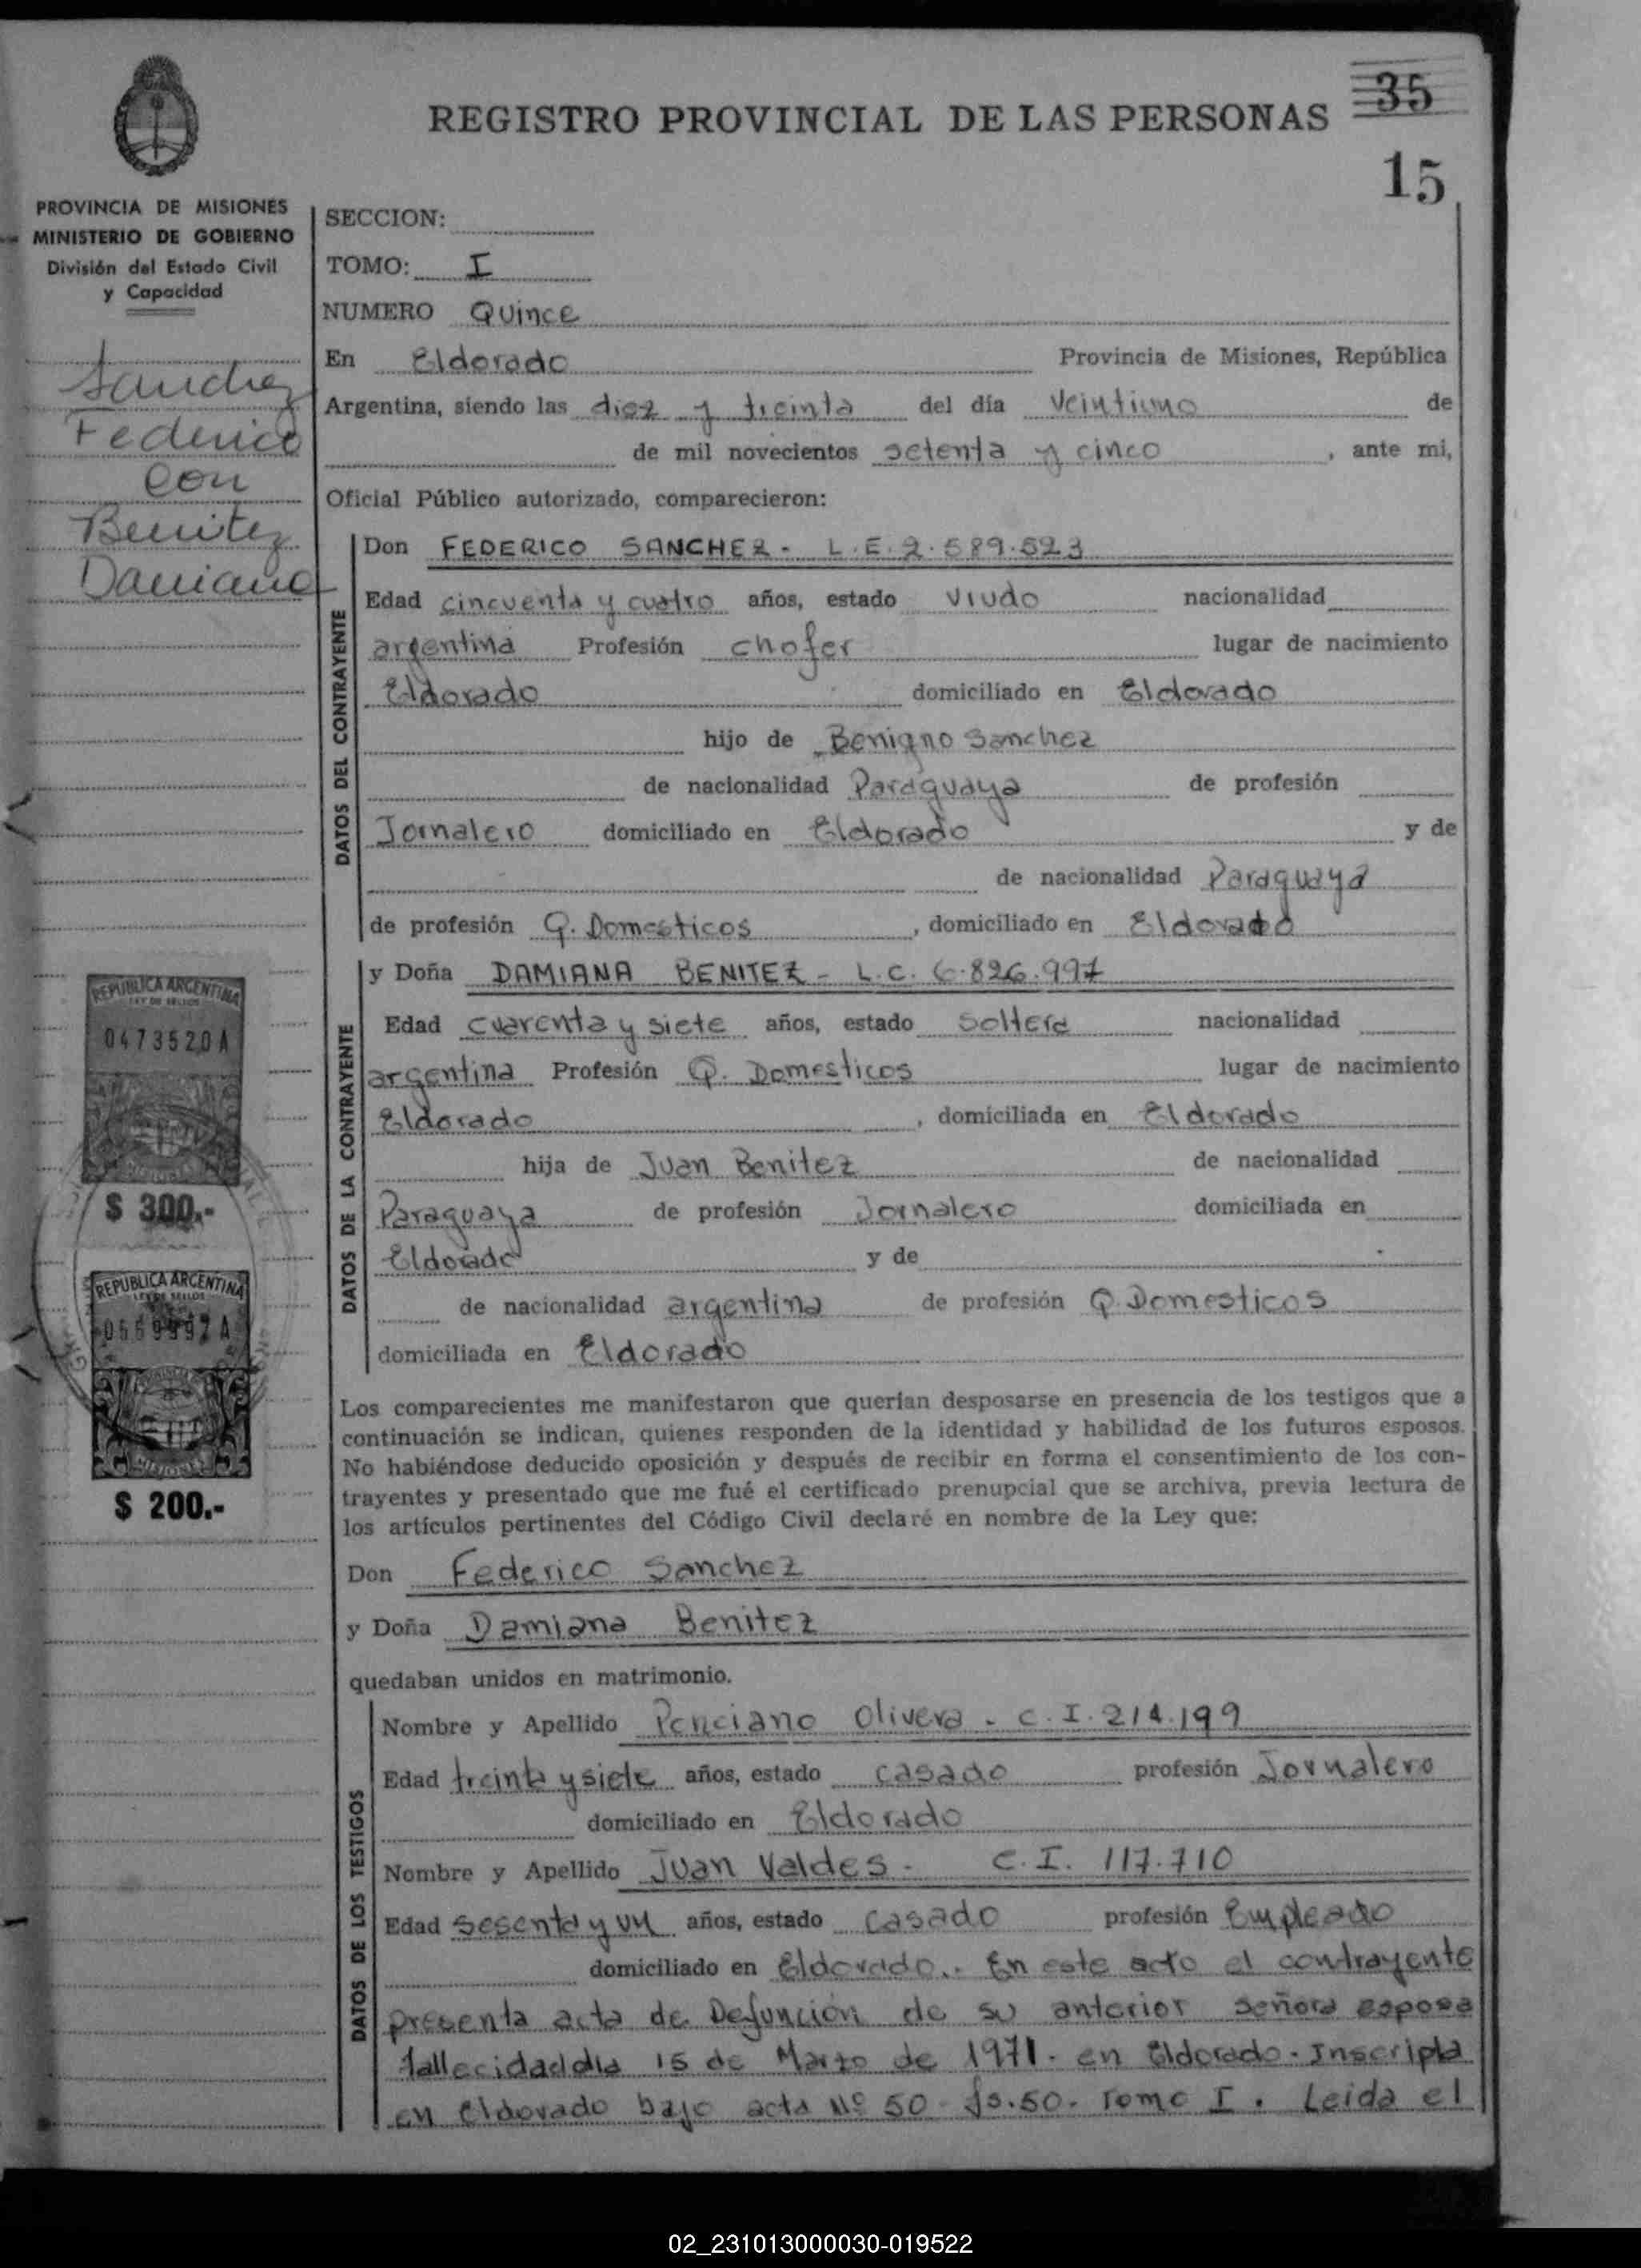 35
REGISTRO PROVINCIAL DE LAS PERSONAS
15
PROVINCIA DE MISIONES
MINISTERIO DE GOBIERNO
División del Estado Civil
y Capacidad
Sanchez
Federico
con
Benitez
Damiana
SECCION:
TOMO: I
NUMERO Quince
En Eldorado Provincia de Misiones, República
Argentina, siendo las diez y treinta del día Veintiuno de
de mil novecientos setenta y cinco, ante mi,
Oficial Público autorizado, comparecieron:
DATOS DEL CONTRAYENTE
Don FEDERICO SANCHEZ - L.E. 2.589.523
Edad cincuenta y cuatro años, estado Viudo nacionalidad
argentina Profesión chofer lugar de nacimiento
Eldorado domiciliado en Eldorado
hijo de Benigno Sanchez
de nacionalidad Paraguaya de profesión
Jornalero domiciliado en Eldorado y de
de nacionalidad Paraguaya
de profesión Q. Domesticos, domiciliado en Eldorado
DATOS DE LA CONTRAYENTE
y Doña DAMIANA BENITEZ - L.C. 6.826.997
Edad cuarenta y siete años, estado Soltera nacionalidad
argentina Profesión Q. Domesticos lugar de nacimiento
Eldorado, domiciliada en Eldorado
hija de Juan Benitez de nacionalidad
Paraguaya de profesión Jornalero domiciliada en
Eldorado y de
de nacionalidad argentina de profesión Q. Domesticos
domiciliada en Eldorado
REPUBLICA ARGENTINA
LEY DE SELLOS
0473520A
$ 300.-
REPUBLICA ARGENTINA
LEY DE SELLOS
MISIONES
$ 200.-
Los comparecientes me manifestaron que querían desposarse en presencia de los testigos que a
continuación se indican, quienes responden de la identidad y habilidad de los futuros esposos.
No habiéndose deducido oposición y después de recibir en forma el consentimiento de los con-
trayentes y presentado que me fué el certificado prenupcial que se archiva, previa lectura de
los artículos pertinentes del Código Civil declaré en nombre de la Ley que:
Don Federico Sanchez
y Doña Damiana Benitez
quedaban unidos en matrimonio.
DATOS DE LOS TESTIGOS
Nombre y Apellido Ponciano Olivera - C.I. 214.199
Edad treinta y siete años, estado casado profesión Jornalero
domiciliado en Eldorado
Nombre y Apellido Juan Valdes - C.I. 117.710
Edad sesenta y un años, estado casado profesión Empleado
domiciliado en Eldorado.. En este acto el contrayente
presenta acta de Defunción de su anterior señora esposa
fallecida el dia 15 de Marzo de 1971. en Eldorado. Inscripta
en Eldorado bajo acta Nº 50 - fs. 50. Tomo I. Leida el
02_231013000030-019522